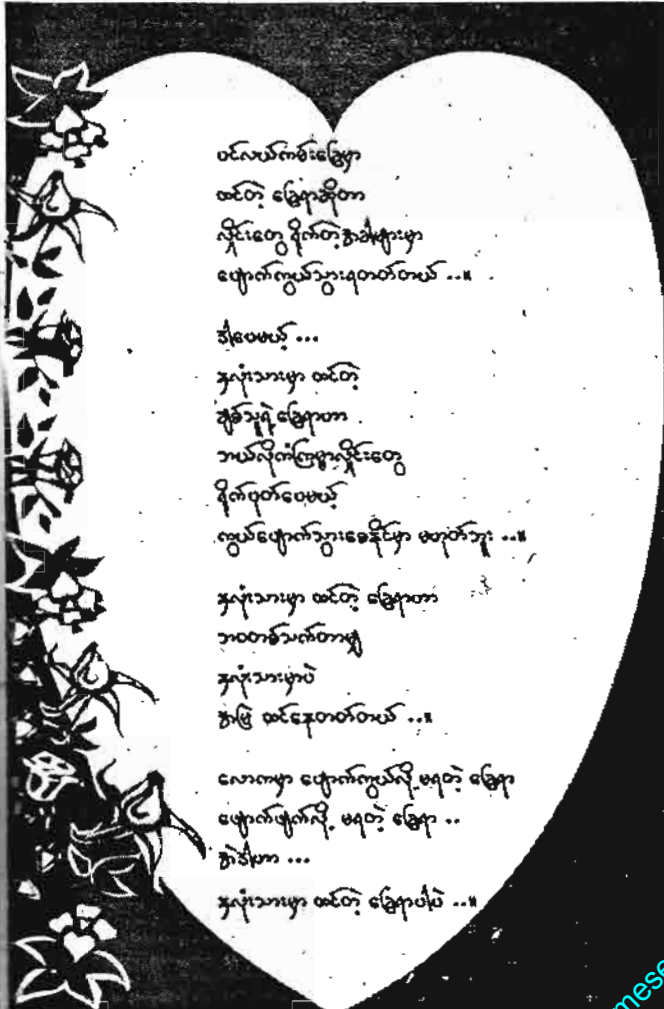 ပင်လယ်ကမ်းခြေမှာ
ထင်တဲ့ ခြေရာဆိုတာ
လှိုင်းတွေ ရိုက်တဲ့အခါများမှာ
ပျောက်ကွယ်သွားရတတ်တယ် ..။
ဒါပေမယ့် ...
နှလုံးသားမှာ ထင်တဲ့
ချစ်သူရဲ့ ခြေရာဟာ
ဘယ်လိုကံကြမ္မာလှိုင်းတွေ
ရိုက်ပုတ်ပေမယ့်
ကွယ်ပျောက်သွားစေနိုင်မှာ မဟုတ်ဘူး ..။
နှလုံးသားမှာ ထင်တဲ့ ခြေရာဟာ
ဘဝတစ်သက်တာမျှ
နှလုံးသားမှာပဲ
အမြဲ ထင်နေတတ်တယ် ..။
လောကမှာ ပျောက်ကွယ်လို့ မရတဲ့ ခြေရာ
ဖျောက်ဖျက်လို့ မရတဲ့ ခြေရာ ..
အဲဒါဟာ ...
နှလုံးသားမှာ ထင်တဲ့ ခြေရာပါပဲ ..။